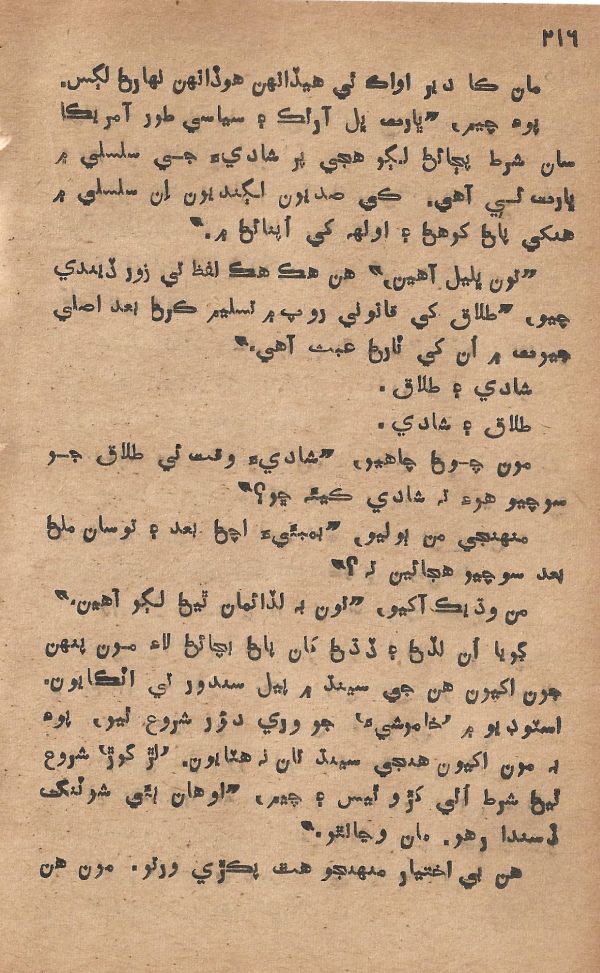 ٢١٦
مان ڪا دير اواڪ ٿي هيڏانهن هوڏانهن نهارڻ لڳس.
پوءِ چيم، ”ڀارت ڀل آرٿڪ ۽ سياسي طور آمريڪا
سان شرط پڄائڻ لڳو هجي پر شاديءَ جي سلسلي ۾
ڀارت ئي آهي. ڪي صديون لڳنديون اِن سلسلي ۾
هنکي پاڻ کوهڻ ۽ اولهه کي اُپنائڻ ۾.“
”تون ڀليل آهين،“ هن هڪ هڪ لفظ تي زور ڏيندي
چيو، ”طلاق کي قانوني روپ ۾ تسليم ڪرڻ بعد اصلي
جيوت ۾ اُن کي ٽارڻ عبث آهي.“
شادي ۽ طلاق.
طلاق ۽ شادي.
مون چوڻ چاهيو، ”شاديءَ وقت ئي طلاق جو
سوچيو هوءِ ته شادي ڪيئه ڇو؟“
منهنجي من ٻوليو، ”بمبئيءَ اچڻ بعد ۽ توسان ملڻ
بعد سوچيو هجائين ته؟“
من وڌيڪ آکيو، ”تون به لڏائمان ٿيڻ لڳو آهين.“
ڳويا اُن لڏڻ ۽ ڏڏڻ کان پاڻ بچائڻ لاءِ مون پنهن
جون اکيون هن جي سينڌ ۾ پيل سندور تي اٽڪايون.
اسٽوڊيو ۾ ’خاموشيءَ‘ جو وري دؤر شروع ٿيو، پوءِ
به مون اکيون هنجي سينڌ تان نه هٽايون. ’لڙ گوڙ‘ شروع
ٿيڻ شرط اُٿي کڙو ٿيس ۽ چيم، ”اوهان ٻئي شوٽنگ
ڏسندا رهو. مان وڃانٿو.“
هن بي اختيار منهنجو هٿ پڪڙي ورتو. مون هن